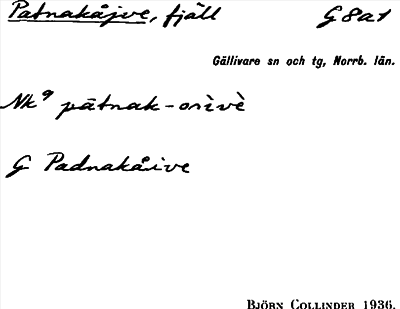 Patnakåjve, fjäll G8a1
Gällivare sn och tg, Norrb. län.
Nk⁹ pātnak-oìvè
G Padnakåive
BJÖRN COLLINDER 1936.